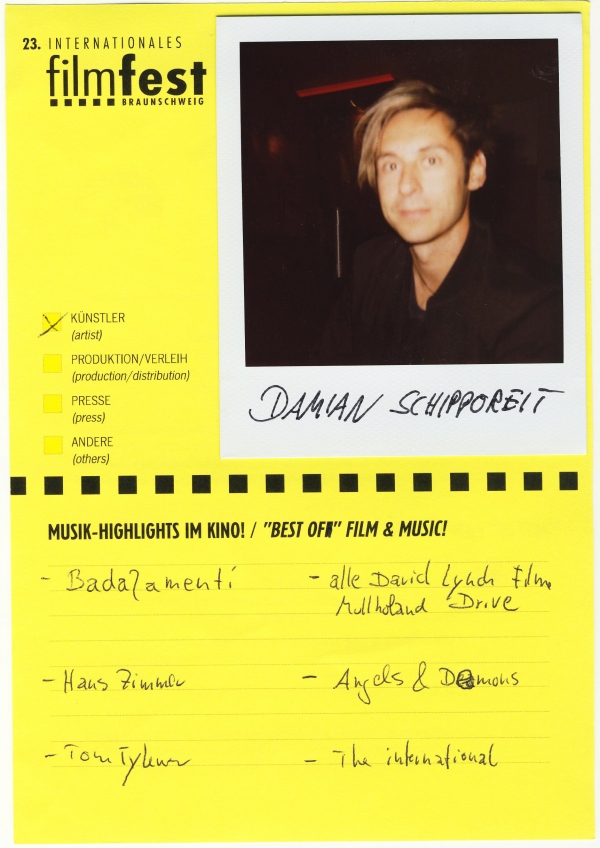 23. INTERNATIONALES
filmfest
BRAUNSCHWEIG
KÜNSTLER
(artist)
PRODUKTION/VERLEIH
(production/distribution)
PRESSE
(press)
ANDERE
(others)
DAMIAN SCHIPPOREIT
MUSIK-HIGHLIGHTS IM KINO! / "BEST OF" FILM & MUSIC!
- Badalamenti
- alle David Lynch Filme
Mullholand Drive
- Hans Zimmer
- Angels & Demons
- Tom Tykwer
- The international